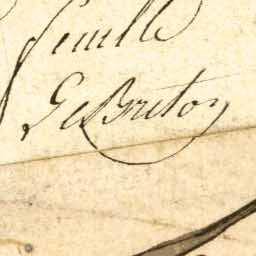 feuille
LeBreton